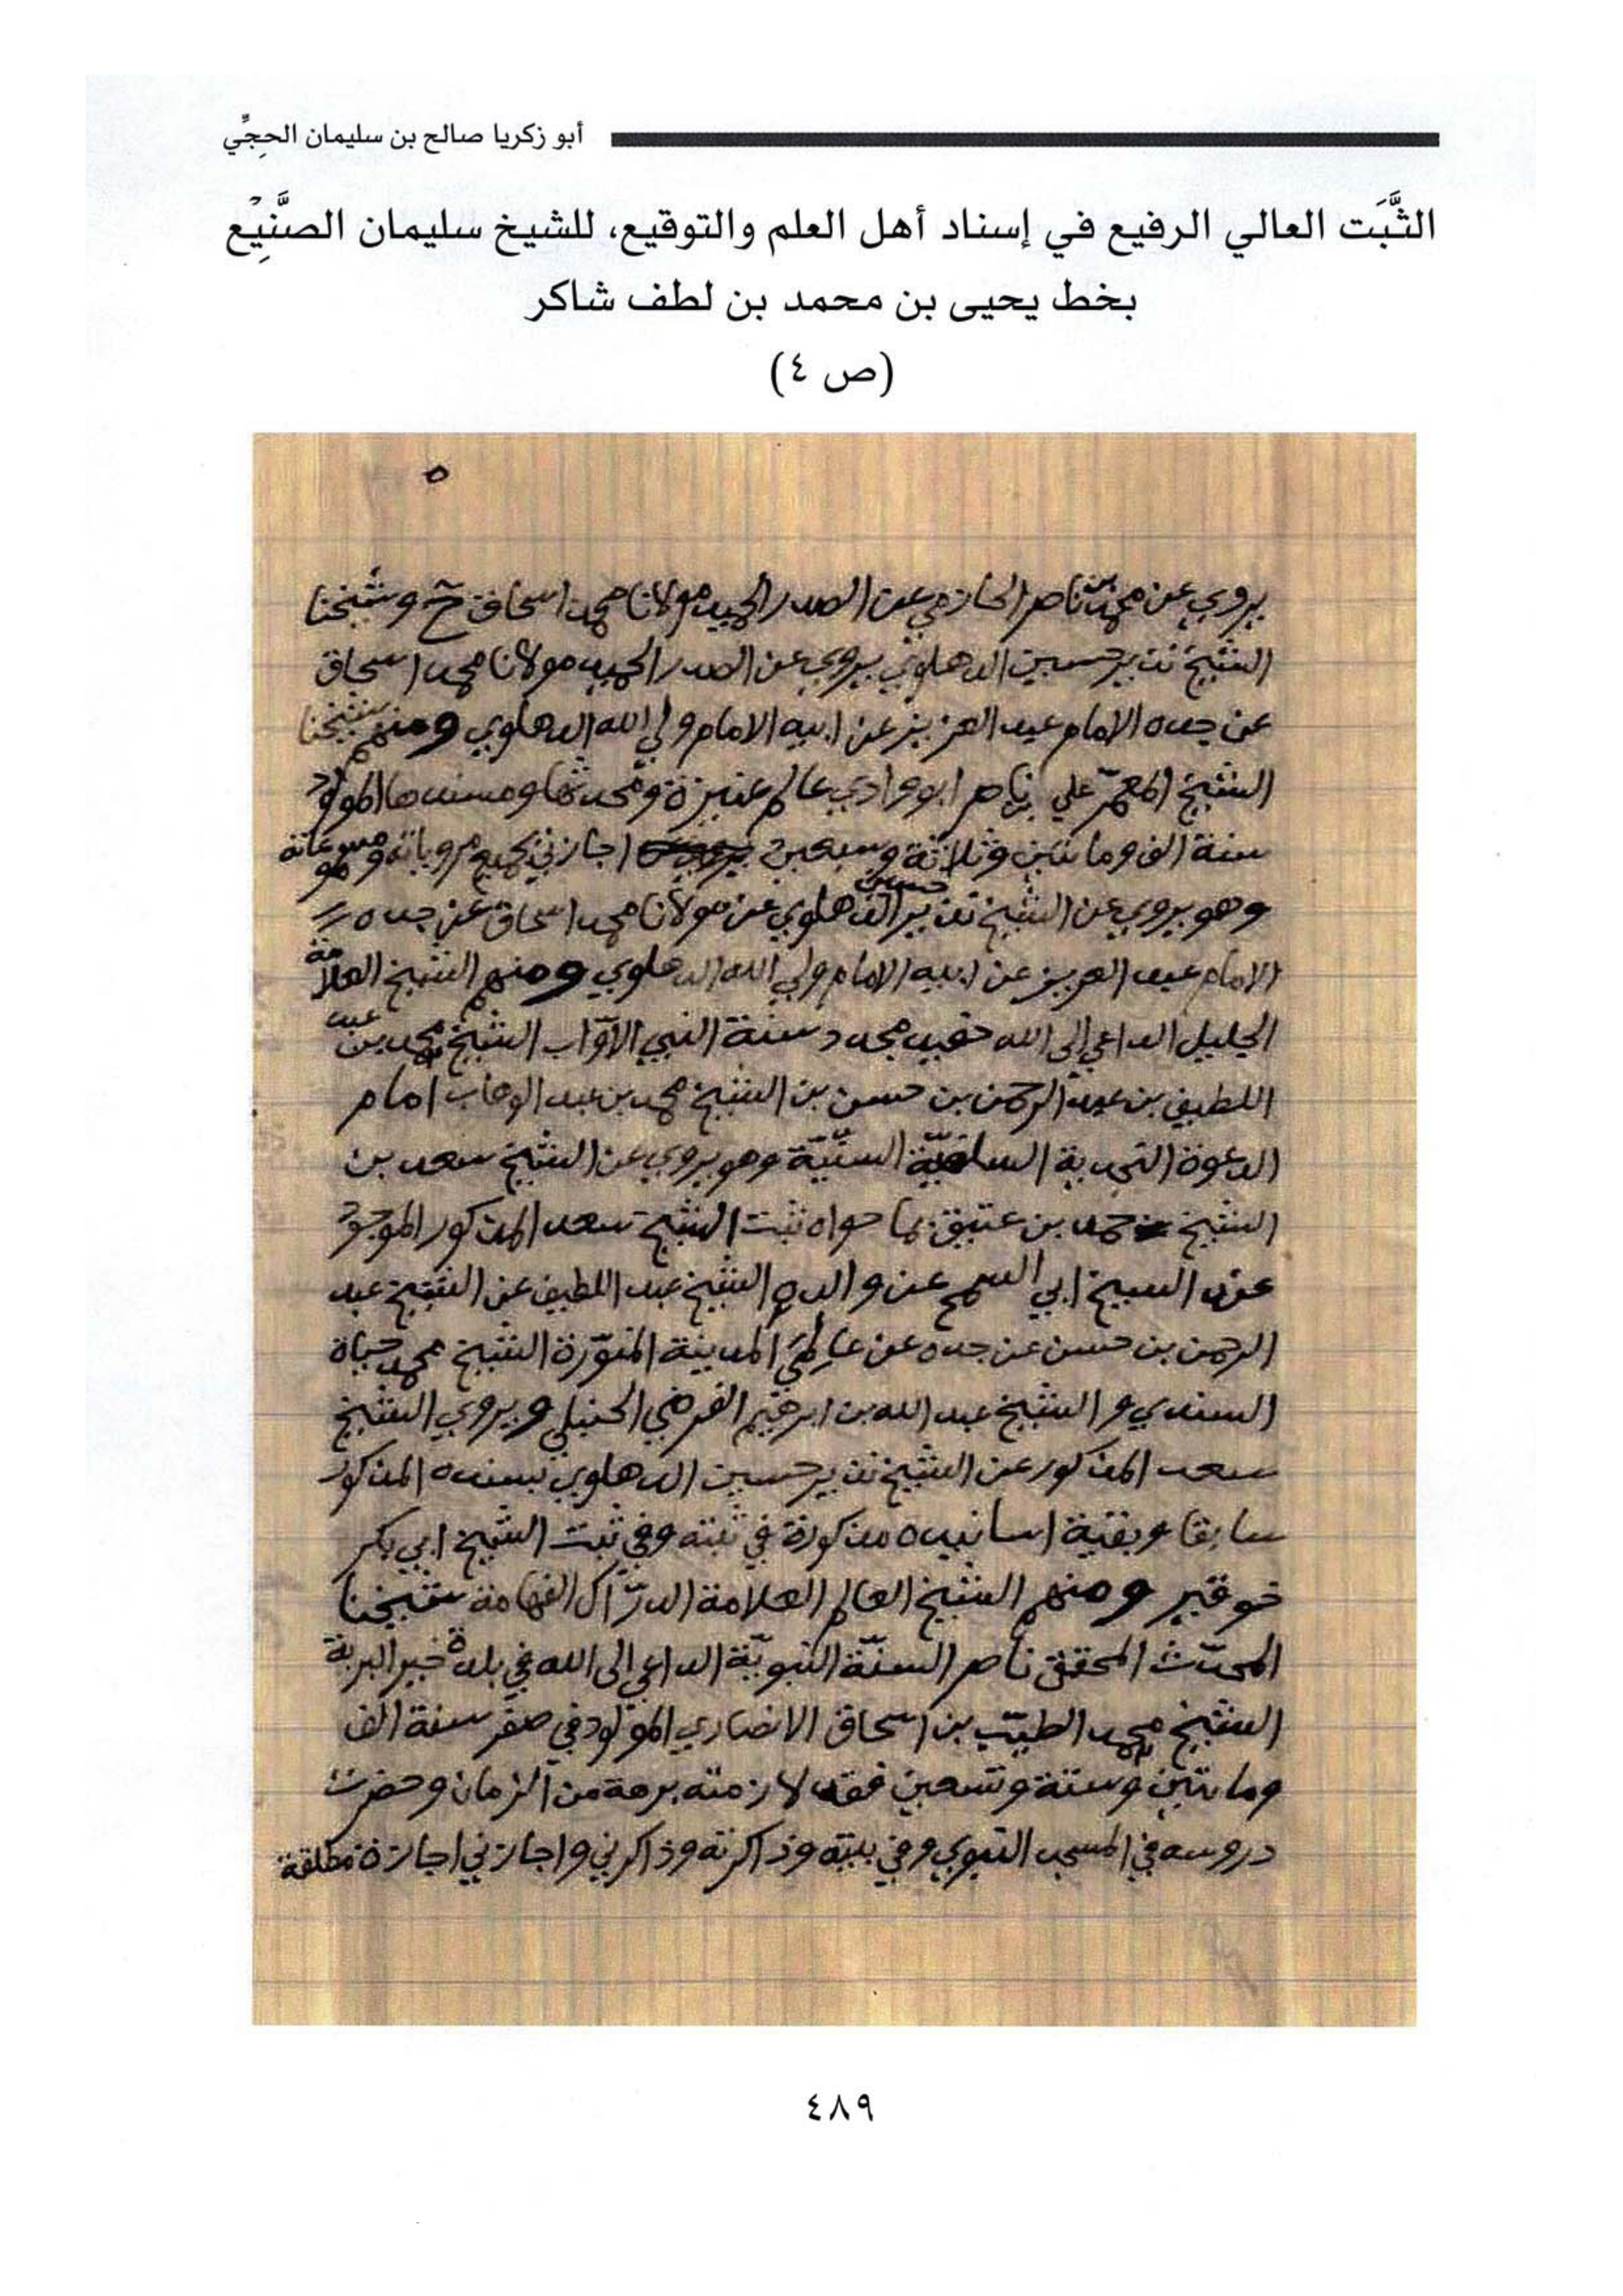 أبو زكريا صالح بن سليمان الحجِّي
الثَّبَت العالي الرفيع في إسناد أهل العلم والتوقيع، للشيخ سليمان الصَّنِيْع
بخط يحيى بن محمد بن لطف شاكر
(ص ٤)
٥
يروي عن محمد بن ناصر الحازمي عن الصدر الحميد مولانا محمد اسحاق ح وشيخنا
الشيخ نذير حسين الدهلوي يروي عن الصدر الحميد مولانا محمد اسحاق
عن جده الامام عبد العزيز عن ابيه الامام ولي الله الدهلوي ومنهم شيخنا
الشيخ المعمّر علي بن ناصر ابو وادي عالم عنيزة ومحدثها ومسندها المولود
سنة الف ومائتين وثلاثة وسبعين اجازني بجميع مروياته ومسموعاته
وهو يروي عن الشيخ نذير حسين الدهلوي عن مولانا محمد اسحاق عن جده
الامام عبد العزيز عن ابيه الامام ولي الله الدهلوي ومنهم الشيخ العلامة
الجليل الداعي الى الله حفيد مجدد سنة النبي الأوّاب الشيخ محمد بن عبد
اللطيف بن عبد الرحمن بن حسن بن الشيخ محمد بن عبد الوهاب امام
الدعوة النجدية السلفيّة السنّيّة وهو يروي عن الشيخ سعد بن
الشيخ حمد بن عتيق بما حواه ثبت الشيخ سعد المذكور الموجود
عند الشيخ ابي السمح عن والده الشيخ عبد اللطيف عن الشيخ عبد
الرحمن بن حسن عن جده عن عالمَي المدينة المنوّرة الشيخ محمد حياة
السندي والشيخ عبد الله بن ابرهيم الفرضي الحنبلي ويروي الشيخ
سعد المذكور عن الشيخ نذير حسين الدهلوي بسنده المذكور
سابقا وبقية اسانيده مذكورة في ثبته وفي ثبت الشيخ ابي بكر
خوقير ومنهم الشيخ العالم العلامة الدرّاك الفهامة شيخنا
المحدّث المحقق ناصر السنّة النبويّة الداعي الى الله في بلدة خير البرية
الشيخ محمد الطيّب بن اسحاق الانصاري المولود في صفر سنة الف
ومائتين وستة وتسعين فقد لازمته برهة من الزمان وحضرت
دروسه في المسجد النبوي وفي بيته وذاكرته وذاكرني واجازني اجازة مطلقة
٤٨٩